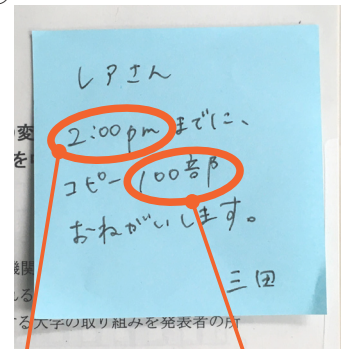 レアさん
2:00pmまでに、
コピー100部
おねがいします。
三田
の変
を
機関
れる
する大学の取り組みを発表者の所